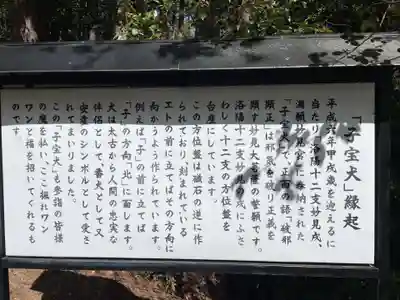 「子宝犬」縁起
平成六年甲戌歳を迎えるに
当たり洛陽十二支妙見戌、
満願妙見宮に奉納された
「子宝犬」で、正面の語「破邪
顕正」は邪気を破り正義を
顕す妙見大菩薩の誓願です。
洛陽十二支妙見の戌にふさ
わしく十二支の方位盤を
台座にしています。
この方位盤は磁石の逆に作
られており刻まれている
エトの前に立てばその方向に
向かうよう作られています。
例えば「子」の前に立てば
「子」の方向「北」に面します。
犬は太古から人間の忠実な
伴侶として、番犬として又
安産のシンボルとして愛さ
れてまいりました。
この「子宝犬」も参詣の皆様
の魔を払い、ここ掘れワン
ワンと福を招いてくれるも
のです。